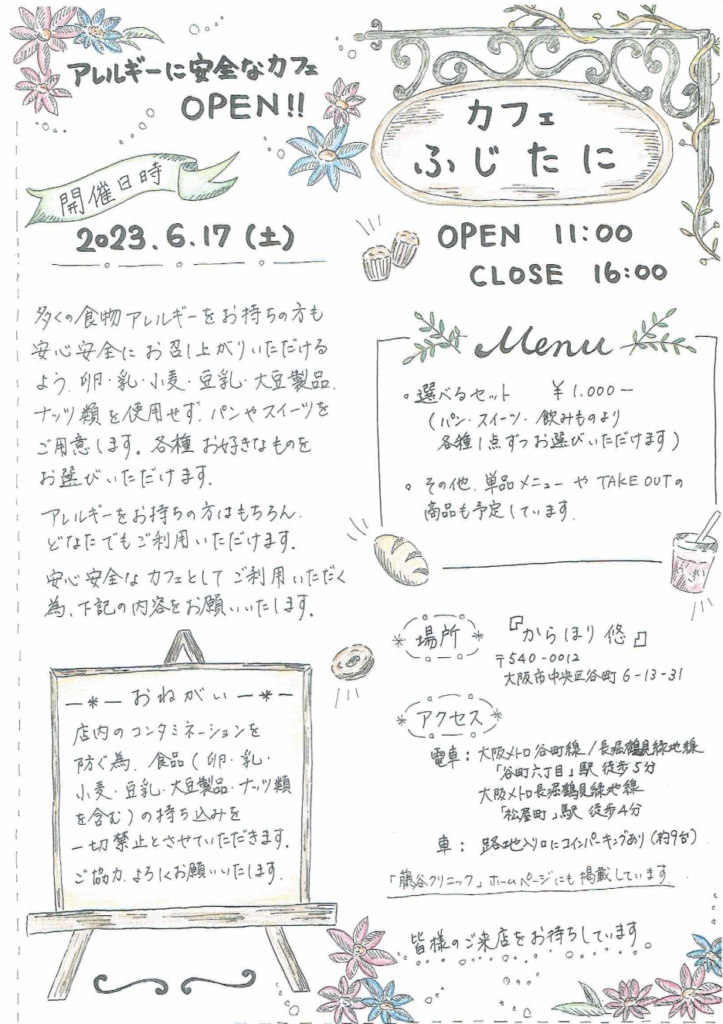 アレルギーに安全なカフェ
OPEN!!
開催日時
2023.6.17(土)
多くの食物アレルギーをお持ちの方も
安心安全にお召し上がりいただける
よう、卵・乳・小麦・豆乳・大豆製品、
ナッツ類を使用せず、パンやスイーツを
ご用意します。各種お好きなものを
お選びいただけます。
アレルギーをお持ちの方はもちろん、
どなたでもご利用いただけます。
安心安全なカフェとしてご利用いただく
為、下記の内容をお願いいたします。
―*―おねがい―*―
店内のコンタミネーションを
防ぐ為、食品(卵・乳・
小麦・豆乳・大豆製品・ナッツ類
を含む)の持ち込みを
一切禁止とさせていただきます。
ご協力、よろしくお願いいたします。
カフェ
ふじたに
OPEN 11:00
CLOSE 16:00
Menu
。選べるセット ¥1.000−
(パン・スイーツ・飲みものより
各種1点ずつお選びいただけます)
。その他、単品メニューやTAKE OUTの
商品も予定しています。
場所
『からほり悠』
〒540-0012
大阪市中央区谷町6-13-31
アクセス
電車:大阪メトロ谷町線/長堀鶴見緑地線
「谷町六丁目」駅 徒歩5分
大阪メトロ長堀鶴見緑地線
「松屋町」駅 徒歩4分
車: 路地入り口にコインパーキングあり(約9台)
「藤谷クリニック」ホームページにも掲載しています
皆様のご来店をお待ちしています